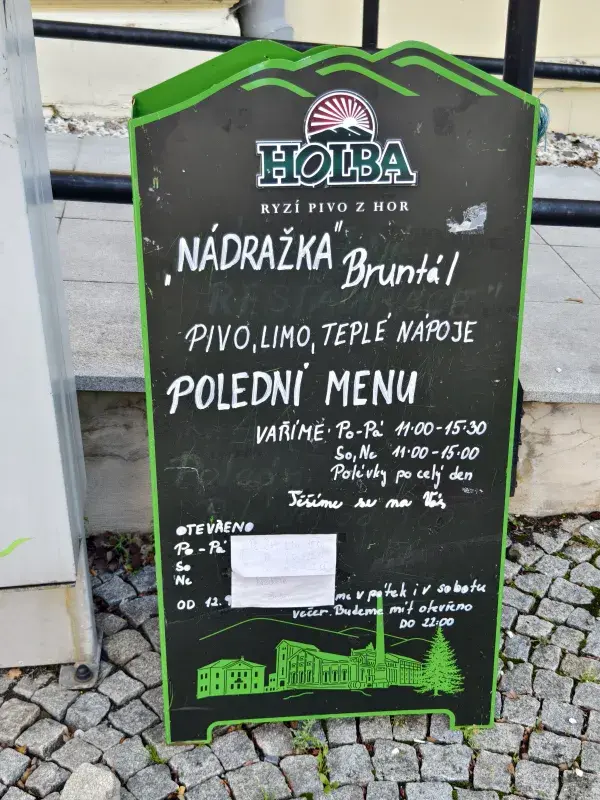 HOLBA
RYZÍ PIVO Z HOR
„NÁDRAŽKA" Bruntál
PIVO, LIMO, TEPLÉ NÁPOJE
POLEDNÍ MENU
VAŘÍME: Po-Pá 11:00-15:30
So, Ne 11:00-15:00
Polévky po celý den
Těšíme se na Vás
OTEVŘENO
Po-Pá
So
Ne
OD 12.9 me v pátek i v sobotu
večer. Budeme mít otevřeno
DO 22:00